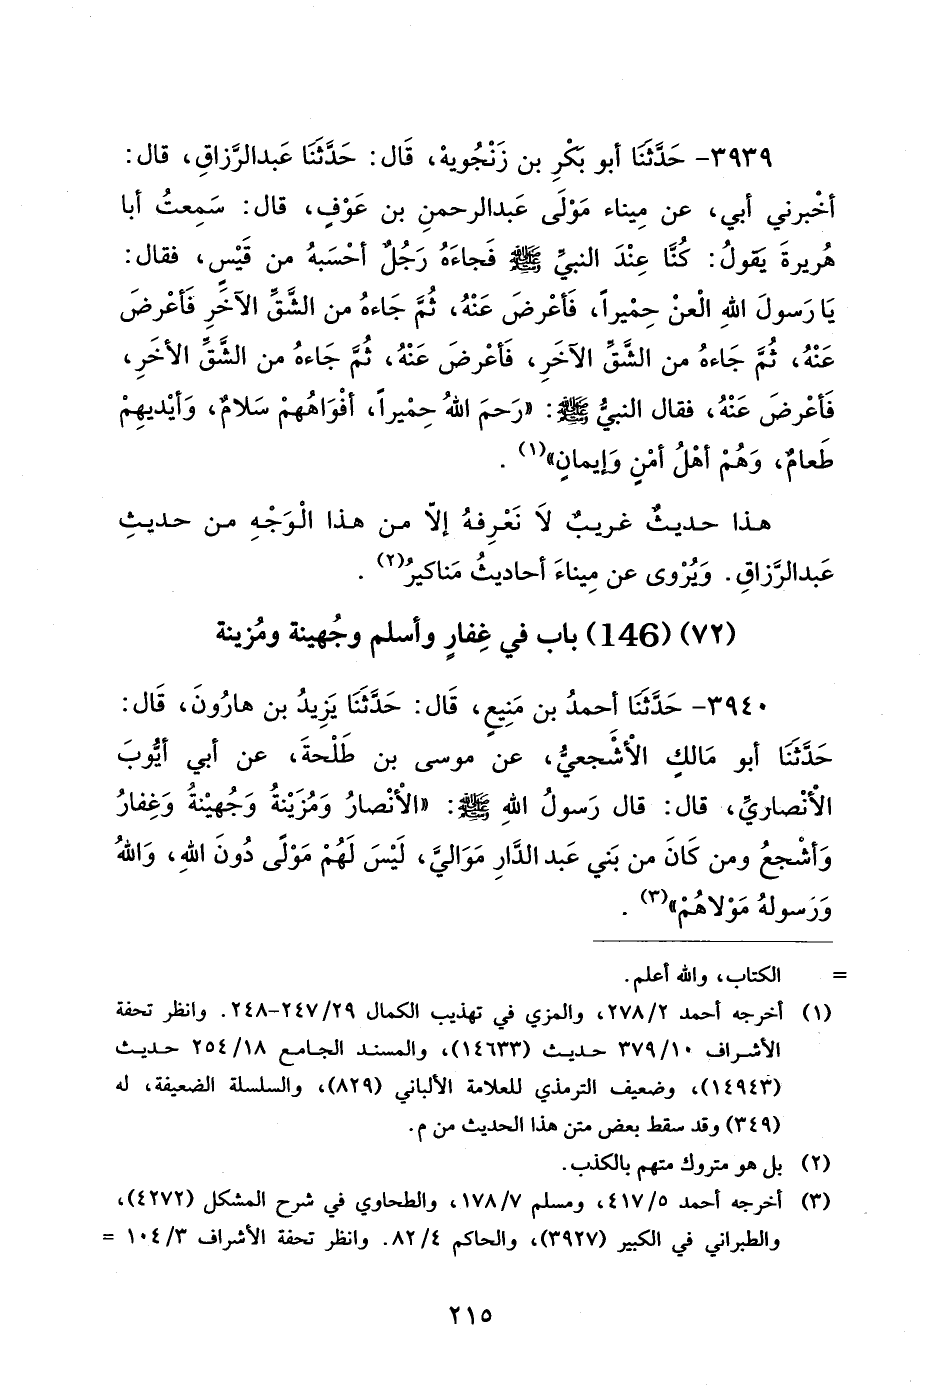 ٣٩٣٩- حَدَّثَنَا أبو بَكْرِ بن زَنْجُويهْ، قَال: حَدَّثَنَا عَبدالرَّزاقِ، قال:
أخْبرني أبي، عن مِيناء مَوْلَى عَبدالرحمنِ بن عَوْفٍ، قال: سَمِعتُ أبا
هُريرةَ يَقولُ: كُنَّا عِنْدَ النبيِّ ﷺ فَجاءَهُ رَجُلٌ أحْسَبهُ من قَيْسٍ، فقال:
يَا رَسولَ اللهِ الْعنْ حِمْيراً، فَأعْرضَ عَنْهُ، ثُمَّ جَاءهُ من الشَّقِّ الآخَرِ فَأعْرضَ
عَنْهُ، ثُمَّ جَاءهُ من الشَّقِّ الآخَرِ، فَأعْرضَ عَنْهُ، ثُمَّ جَاءهُ من الشَّقِّ الآخَرِ،
فَأعْرضَ عَنْهُ، فقال النبيُّ ﷺ: «رَحمَ اللهُ حِمْيراً، أفْوَاهُهمْ سَلامٌ، وَأيْديهِمْ
طَعامٌ، وَهُمْ أهْلُ أمْنٍ وَإيمانٍ»(١).
هذا حديثٌ غريبٌ لاَ نَعْرِفهُ إلاّ من هذا الْوَجْهِ من حديثِ
عَبدالرَّزاقِ. وَيُرْوى عن مِيناءَ أحاديثُ مَناكيرُ(٢).
(٧٢) (146) باب في غِفارٍ وأسلم وجُهينة ومُزينة
٣٩٤٠- حَدَّثَنَا أحمدُ بن مَنِيعٍ، قَال: حَدَّثَنَا يَزِيدُ بن هارُونَ، قَال:
حَدَّثَنَا أبو مَالكٍ الأْشْجعيُّ، عن موسى بن طَلْحةَ، عن أبي أيُّوبَ
الأنْصاريِّ، قال: قال رَسولُ اللهِ ﷺ: «الأنْصارُ وَمُزَيْنةُ وَجُهيْنةُ وَغِفارُ
وَأشْجعُ ومن كَانَ من بَني عَبد الدَّارِ مَوَاليَّ، لَيْسَ لَهُمْ مَوْلًى دُونَ اللهِ، وَاللهُ
وَرَسولهُ مَوْلاهُمْ»(٣).
= الكتاب، والله أعلم.
(١) أخرجه أحمد ٢٧٨/٢، والمزي في تهذيب الكمال ٢٤٧/٢٩-٢٤٨. وانظر تحفة
الأشراف ٣٧٩/١٠ حديث (١٤٦٣٣)، والمسند الجامع ٢٥٤/١٨ حديث
(١٤٩٤٣)، وضعيف الترمذي للعلامة الألباني (٨٢٩)، والسلسلة الضعيفة، له
(٣٤٩) وقد سقط بعض متن هذا الحديث من م.
(٢) بل هو متروك متهم بالكذب.
(٣) أخرجه أحمد ٤١٧/٥، ومسلم ١٧٨/٧، والطحاوي في شرح المشكل (٤٢٧٢)،
والطبراني في الكبير (٣٩٢٧)، والحاكم ٨٢/٤. وانظر تحفة الأشراف ١٠٤/٣ =
٢١٥